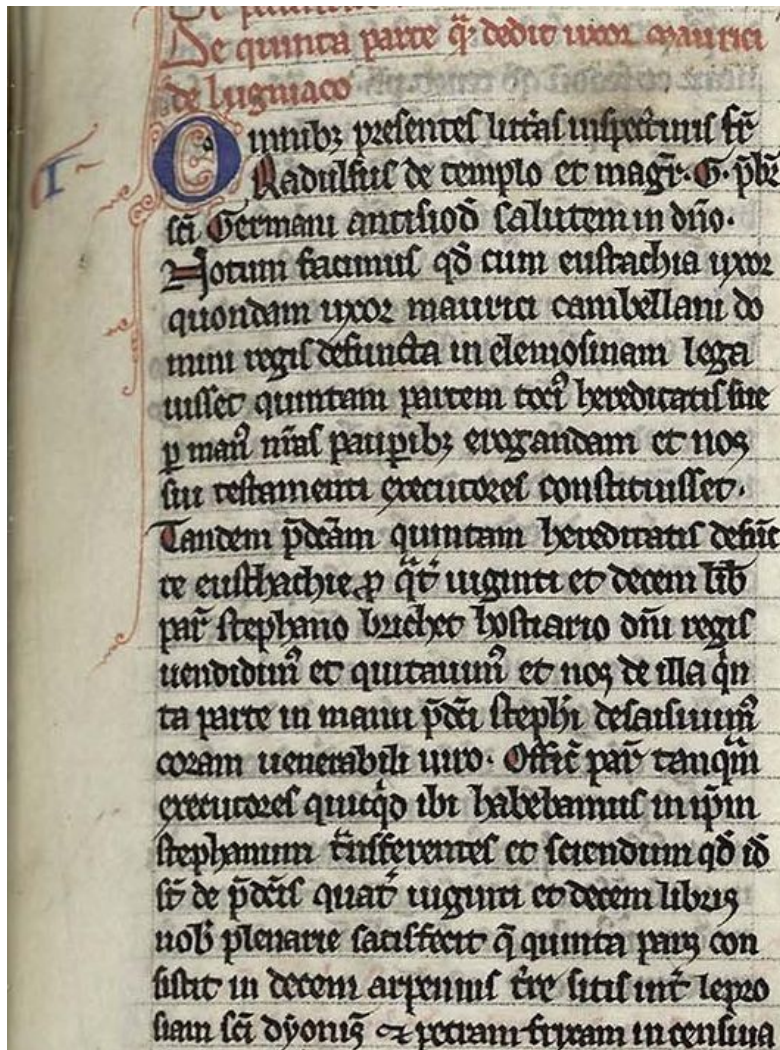 De quinta parte q̄ dedit uxor maurici
de lugniaco
Omnibꝫ presentes litt̄as inspecturis fr̄
Radulfus de templo et magr̄. G. p̄br̄
sc̄i Germani antisiod̄ salutem in dn̄o.
Notum facimus qd̄ cum eustachia uxor
quondam uxor maurici cambellani do
mini regis defuncta in elemosinam lega
uisset quintam partem toci᷒ hereditatis sue
ꝑ man᷒ nr̄as pauꝑibꝫ erogandam et nos
sui testamenti executores constituisset.
Tandem p̄dc̄am quintam hereditatis defūc
te eusthachie ꝓ qͣt᷑ uiginti et decem lib̄
par᷑ stephano brichet hostiario dn̄i regis
uendidim᷒ et quitauim᷒ et nos de illa qͥn
ta parte in manu p̄dc̄i steph̄i desaisiuim᷒
coram uenerabili uiro. Offic̄ par᷑ tanqͣm
executores quicqͥd ibi habebamus in ip̄m
stephanum t̄nsferentes et sciendum qd̄ id̄
st̄ de p̄dc̄is quat᷑ uiginti et decem libris
nob̄ plenarie satisfecit q̄ quinta pars con
sistit in decem arpennis t̄re sitis int᷑ lepro
siam sc̄i dyonis᷒ ⁊ petram frixam in censiua